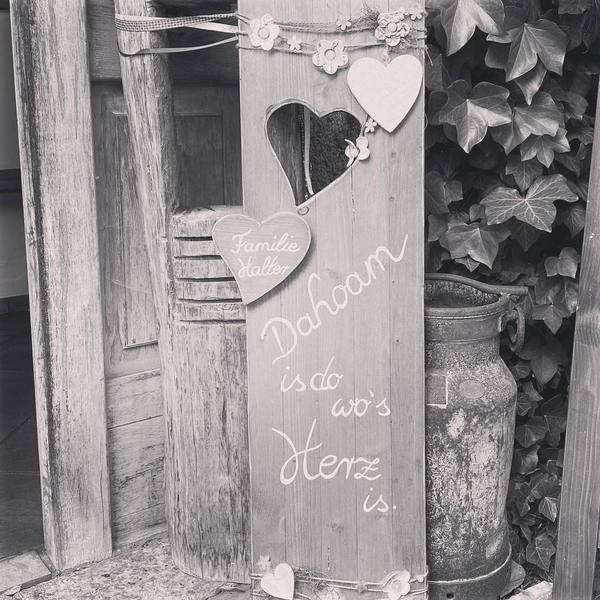 Familie
Halter
Dahoam
is do
wo's
Herz
is.